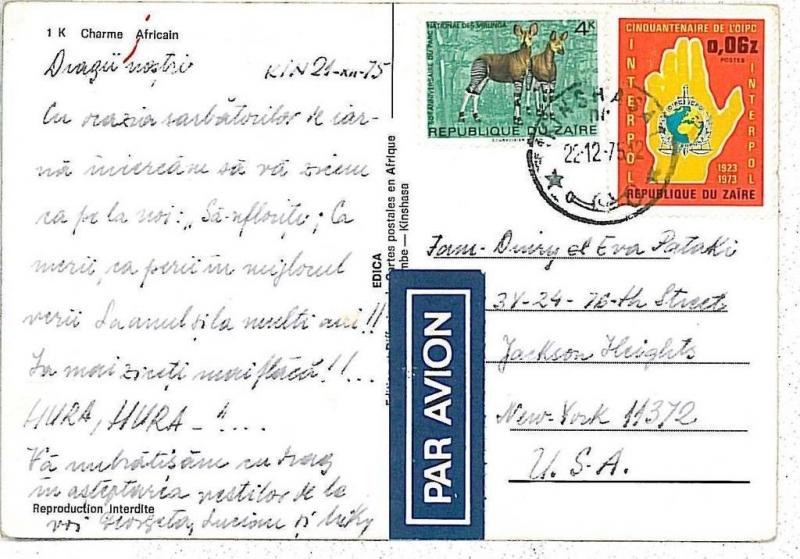 1 K Charme Africain
Dragii noștri KIN 21-XII-75
Cu ocazia sarbătorilor de iar-
nă încercăm să vă zicem
ca pe la noi: „Să-nfloriți; Ca
merii, ca perii în mijlocul
verii La anul și la multi ani!!
Ia mai ziceți măi flăcă!!...
HURA, HURA - !...
Vă îmbrățisăm cu drag
în asteptarea vestilor de la
voi Georgeta, Lucian și
Reproduction Interdite
EDICA
Cartes postales en Afrique
Kinshasa
PAR AVION
ANNIVERSAIRE DU PARC NATIONAL DES VIRUNGA
4K
REPUBLIQUE DU ZAÏRE
CINQUANTENAIRE DE L'OIPC
0,06Z
POSTES
INTERPOL
INTERPOL
1923
1973
REPUBLIQUE DU ZAÏRE
KINSHASA
22-12-75-12
Fam. et Eva Pataki
37-24-76-th Street
Jackson Heights
New-York 11372
U.S.A.